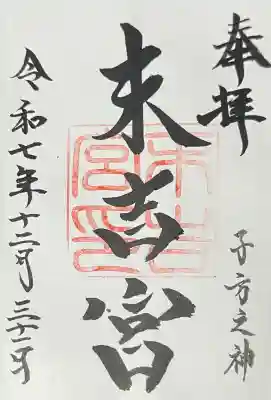 奉拝
子方之神
末吉宮
令和七年十二月三十一日